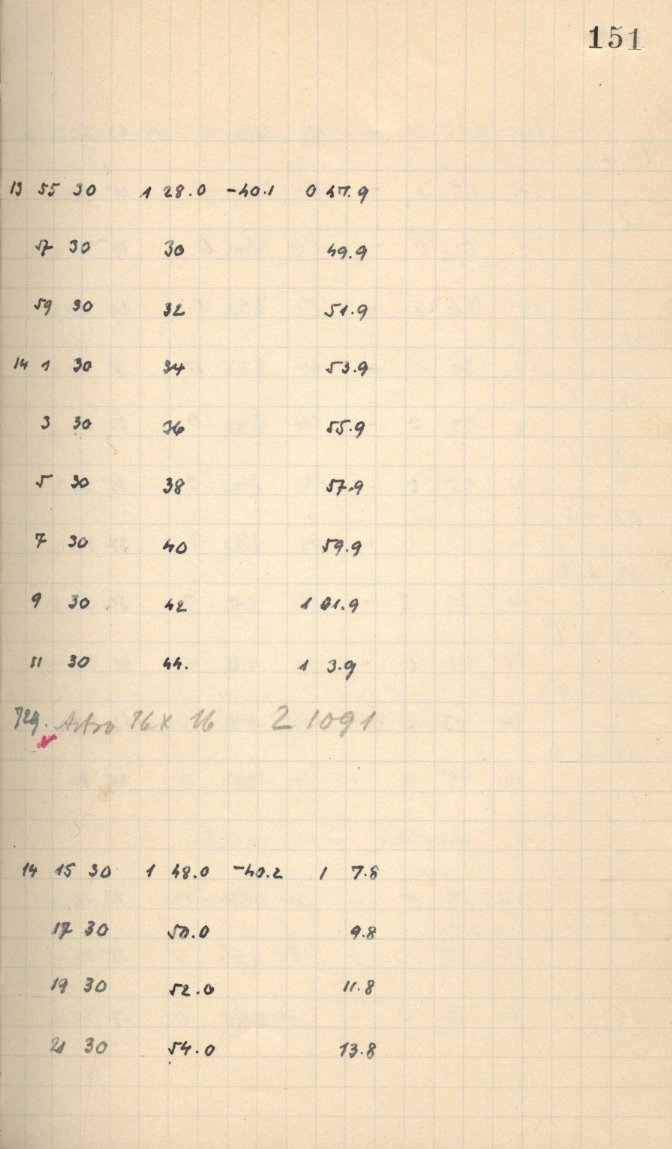 151
13 55 30 1 28.0 -40.1 0 47.9
57 30 30 49.9
59 30 32 51.9
14 1 30 34 53.9
3 30 36 55.9
5 30 38 57.9
7 30 40 59.9
9 30 42 1 01.9
11 30 44. 1 3.9
Astro 16 x 16 2 1091
14 15 30 1 48.0 -40.2 1 7.8
17 30 50.0 9.8
19 30 52.0 11.8
21 30 54.0 13.8